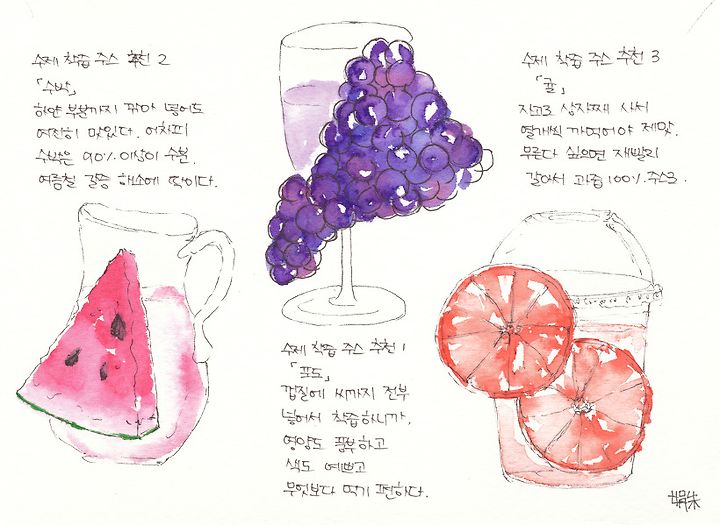 수제 착즙 주스 추천 2
「수박」
하얀 부분까지 깎아 넣어도
여전히 맛있다. 어차피
수박은 90% 이상이 수분.
여름철 갈증 해소에 딱이다.
수제 착즙 주스 추천 1
「포도」
껍질에 씨까지 전부
넣어서 착즙하니까,
영양도 풍부하고
색도 예쁘고
무엇보다 먹기 편하다.
수제 착즙 주스 추천 3
「귤」
자고로 상자째 사서
열개씩 까먹어야 제맛.
무르다 싶으면 재빨리
갈아서 과즙 100% 주스로.